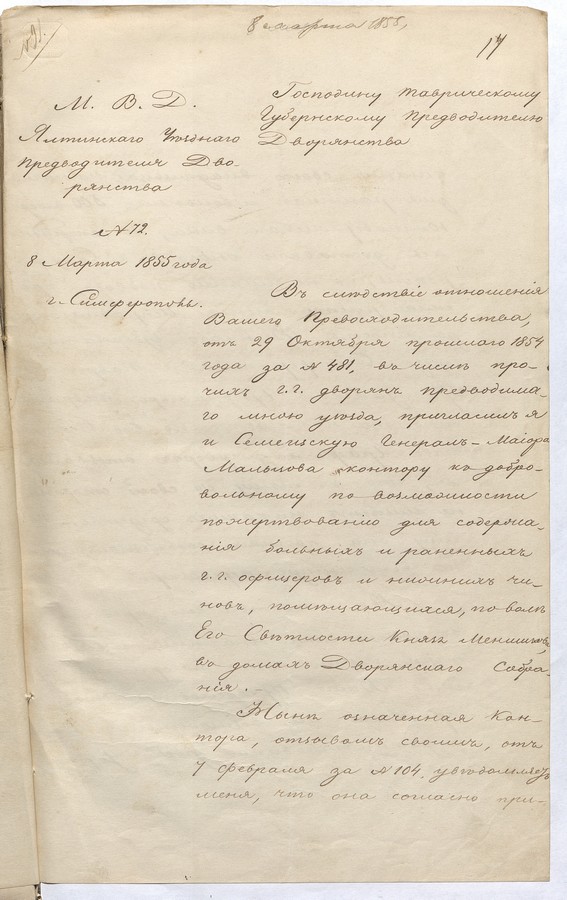 8 марта 1855,
№91.
17
М. В. Д.
Ялтинскаго Уѣзднаго
Предводителя Дво-
рянства
№72.
8 Марта 1855 года
г. Симферополь.
Господину Таврическому
Губернскому Предводителю
Дворянства
Въ слѣдствіе отношенія
Вашего Превосходительства,
отъ 29 Октября прошлаго 1854
года за №481, въ числѣ про-
чихъ г.г. дворянъ предводима-
го мною уѣзда, пригласилъ я
и Семеизскую Генералъ-Маіора
Мальцова контору къ добро-
вольному по возможности
пожертвованію для содержа-
нія больныхъ и раненныхъ
г.г. офицеровъ и нижнихъ чи-
новъ, помѣщающихся, по волѣ
Его Свѣтлости Князя Меншикова,
въ домахъ Дворянскаго Собра-
нія.-
Нынѣ означенная Кон-
тора, отзывомъ своимъ, отъ
7 февраля за №104, увѣдомляетъ
меня, что она согласно при-